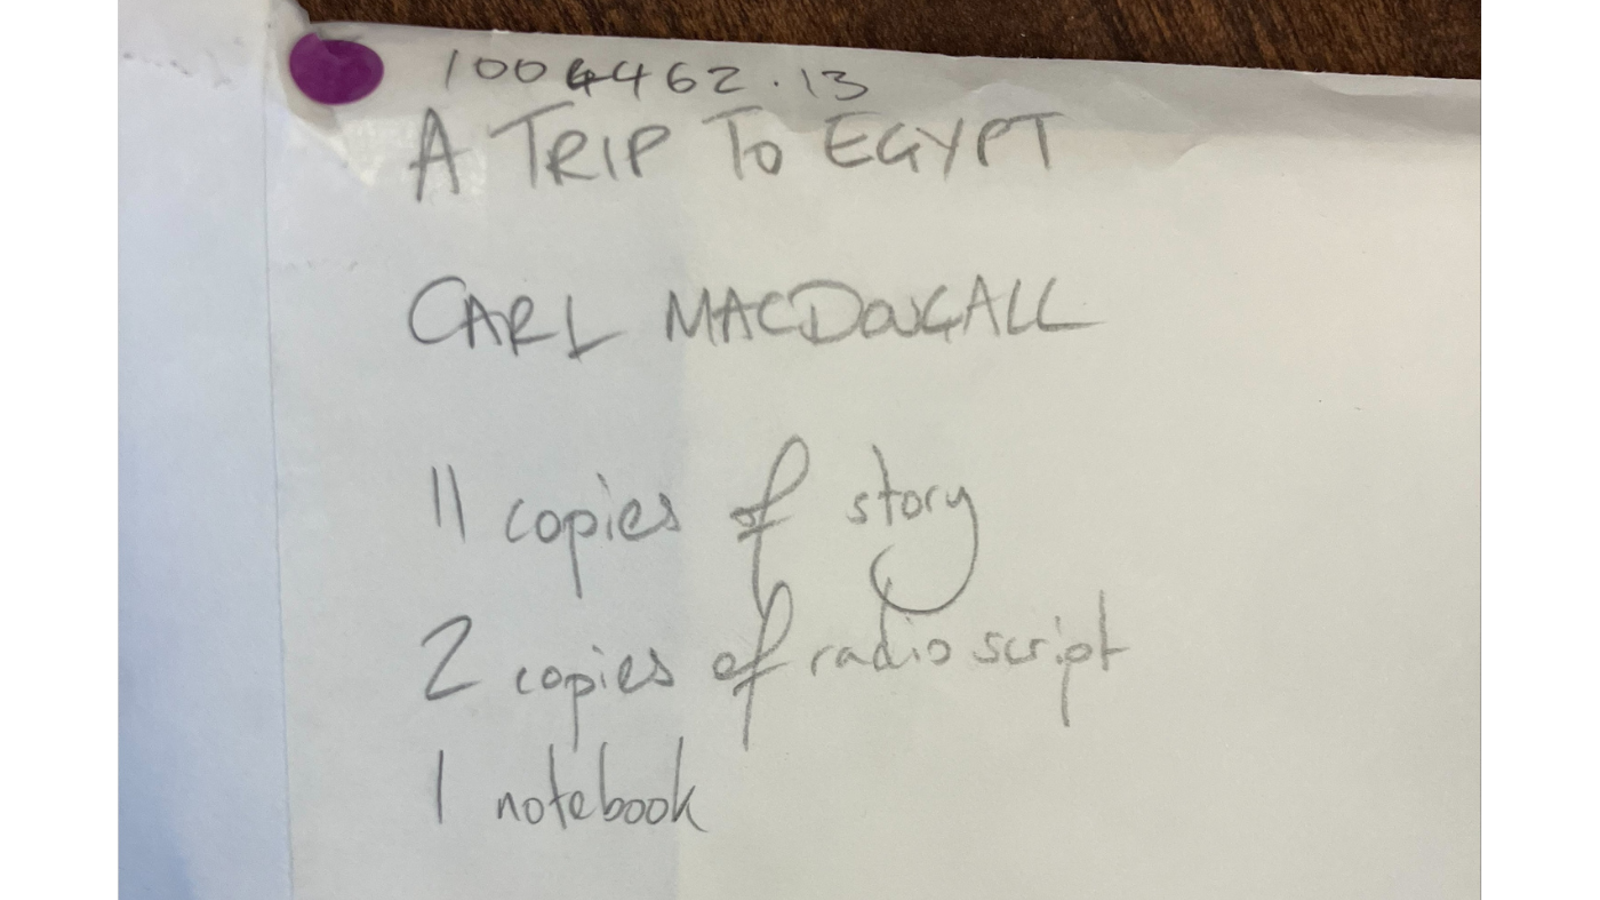 1004462.13
A TRIP TO EGYPT
CARL MACDOUGALL
11 copies of story
2 copies of radio script
1 notebook